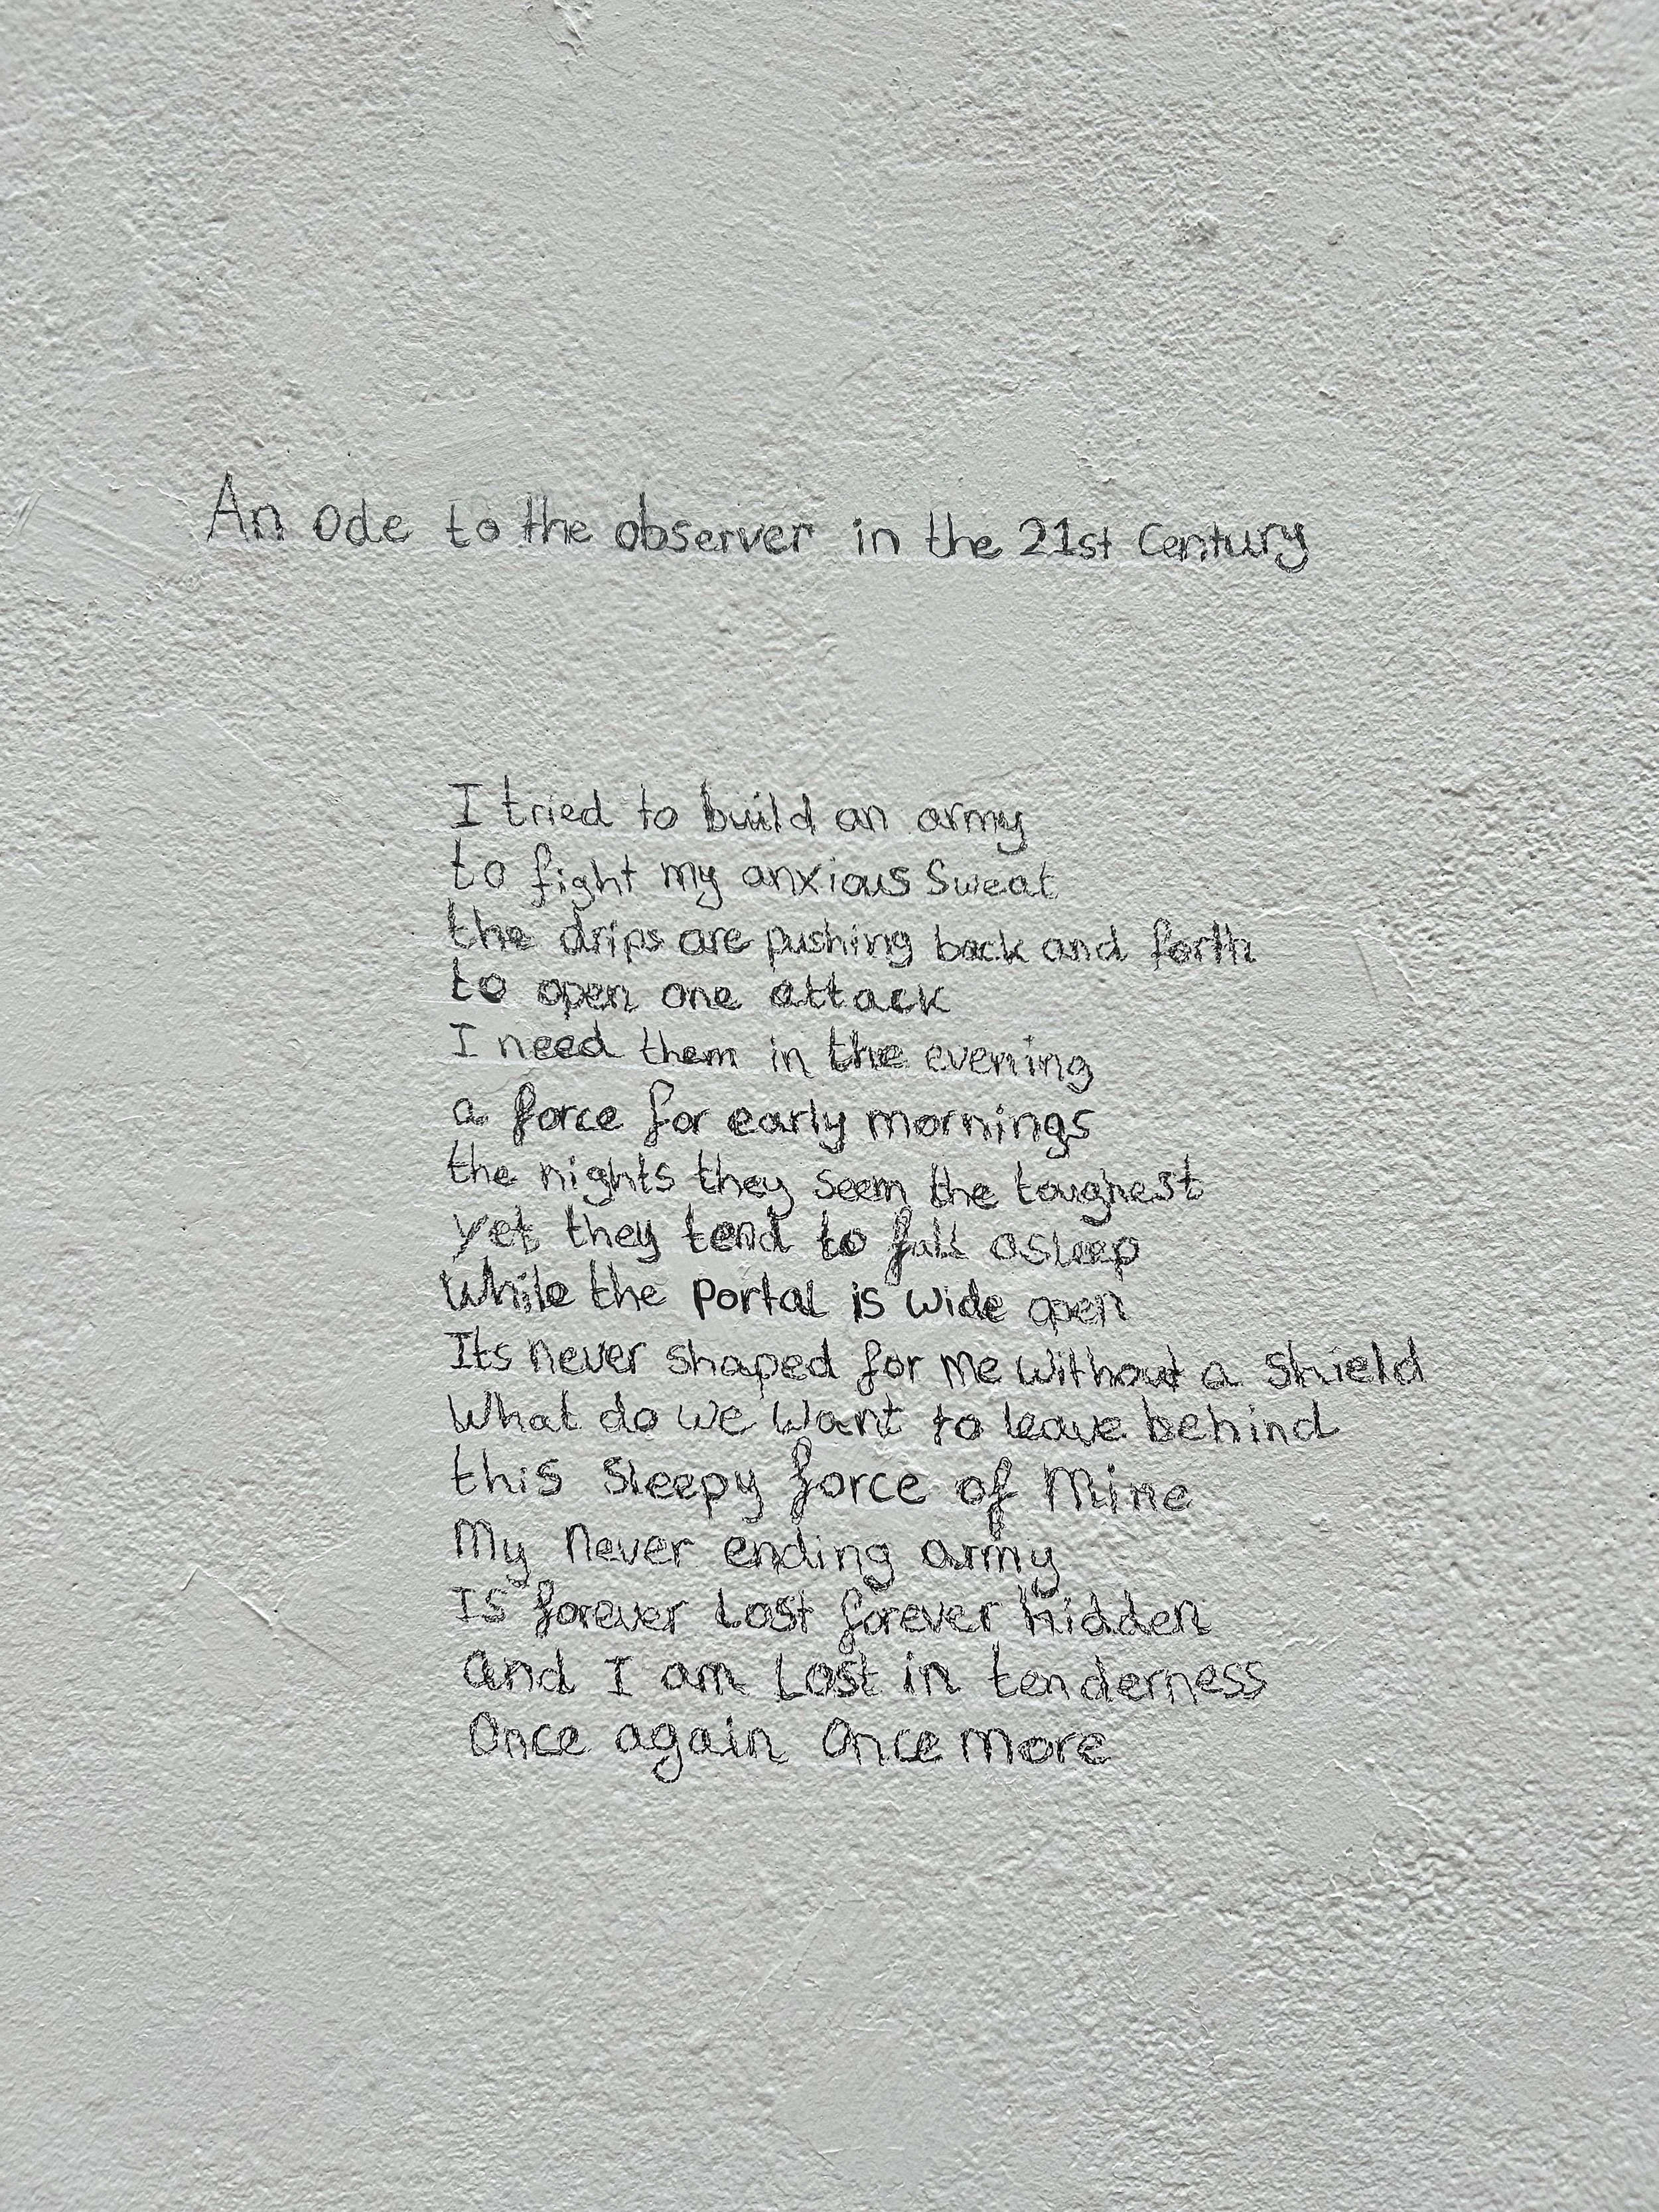 An Ode to the observer in the 21st Century
I tried to build an army
to fight my anxious Sweat
the drips are pushing back and forth
to open one attack
I need them in the evening
a force for early mornings
the nights they seem the toughest
yet they tend to fall asleep
While the Portal is wide open
Its never shaped for me without a Shield
What do we want to leave behind
this sleepy force of Mine
My never ending army
Is forever Lost forever hidden
And I am Lost in tenderness
Once again Once more